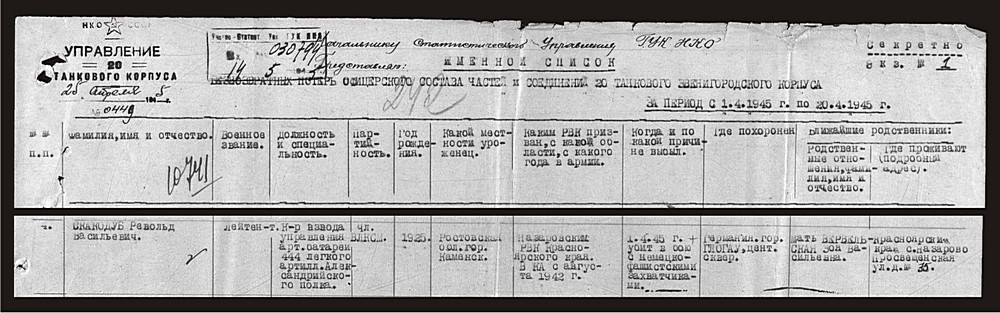 НКО СССР
УПРАВЛЕНИЕ
20
ТАНКОВОГО КОРПУСА
25 апреля 1945
№ 0449
030794
14 5 5
Начальнику Статистического Управления ГУК НКО
Представляю:
Секретно
экз. № 1
ИМЕННОЙ СПИСОК
БЕЗВОЗВРАТНЫХ ПОТЕРЬ ОФИЦЕРСКОГО СОСТАВА ЧАСТЕЙ И СОЕДИНЕНИЙ 20 ТАНКОВОГО ЗВЕНИГОРОДСКОГО КОРПУСА
ЗА ПЕРИОД С 1.4.1945 г. по 20.4.1945 г.
№ №
п.п.
Фамилия, имя и отчество.
10741
Военное
звание.
Должность
и специа-
льность.
Пар-
тий-
ность.
Год
рожде-
ния.
Какой мест-
ности уро-
женец.
Каким РВК приз-
ван, с какой об-
ласти, с какого
года в армии.
Когда и по
какой причи-
не выбыл.
Где похоронен
Ближайшие родственники:
Родствен-
ные отно-
шения, фами-
лия, имя и
отчество.
Где проживают
(подробный
адрес).
4.
СКАКОДУБ Револьд
Васильевич.
Лейтен-т.
К-р взвода
управления
арт.батареи
444 легкого
артилл.Алек-
сандрийско-
го полка.
чл.
ВЛКСМ.
1925.
Ростовская
обл.гор.
Каменск.
Назаровским
РВК Красно-
ярского края.
В КА с авгус-
та 1942 г.
1.4.45 г.
убит в бою
с немецко-
фашистскими
захватчика-
ми.
Германия.гор.
ГЛОГАУ,цент.
сквер.
мать ВЕРБЕЛЬ-
СКАЯ Зоя Ва-
сильевна.
Красноярский
край с.Назарово
Просвещенская
ул.д.№ 35.